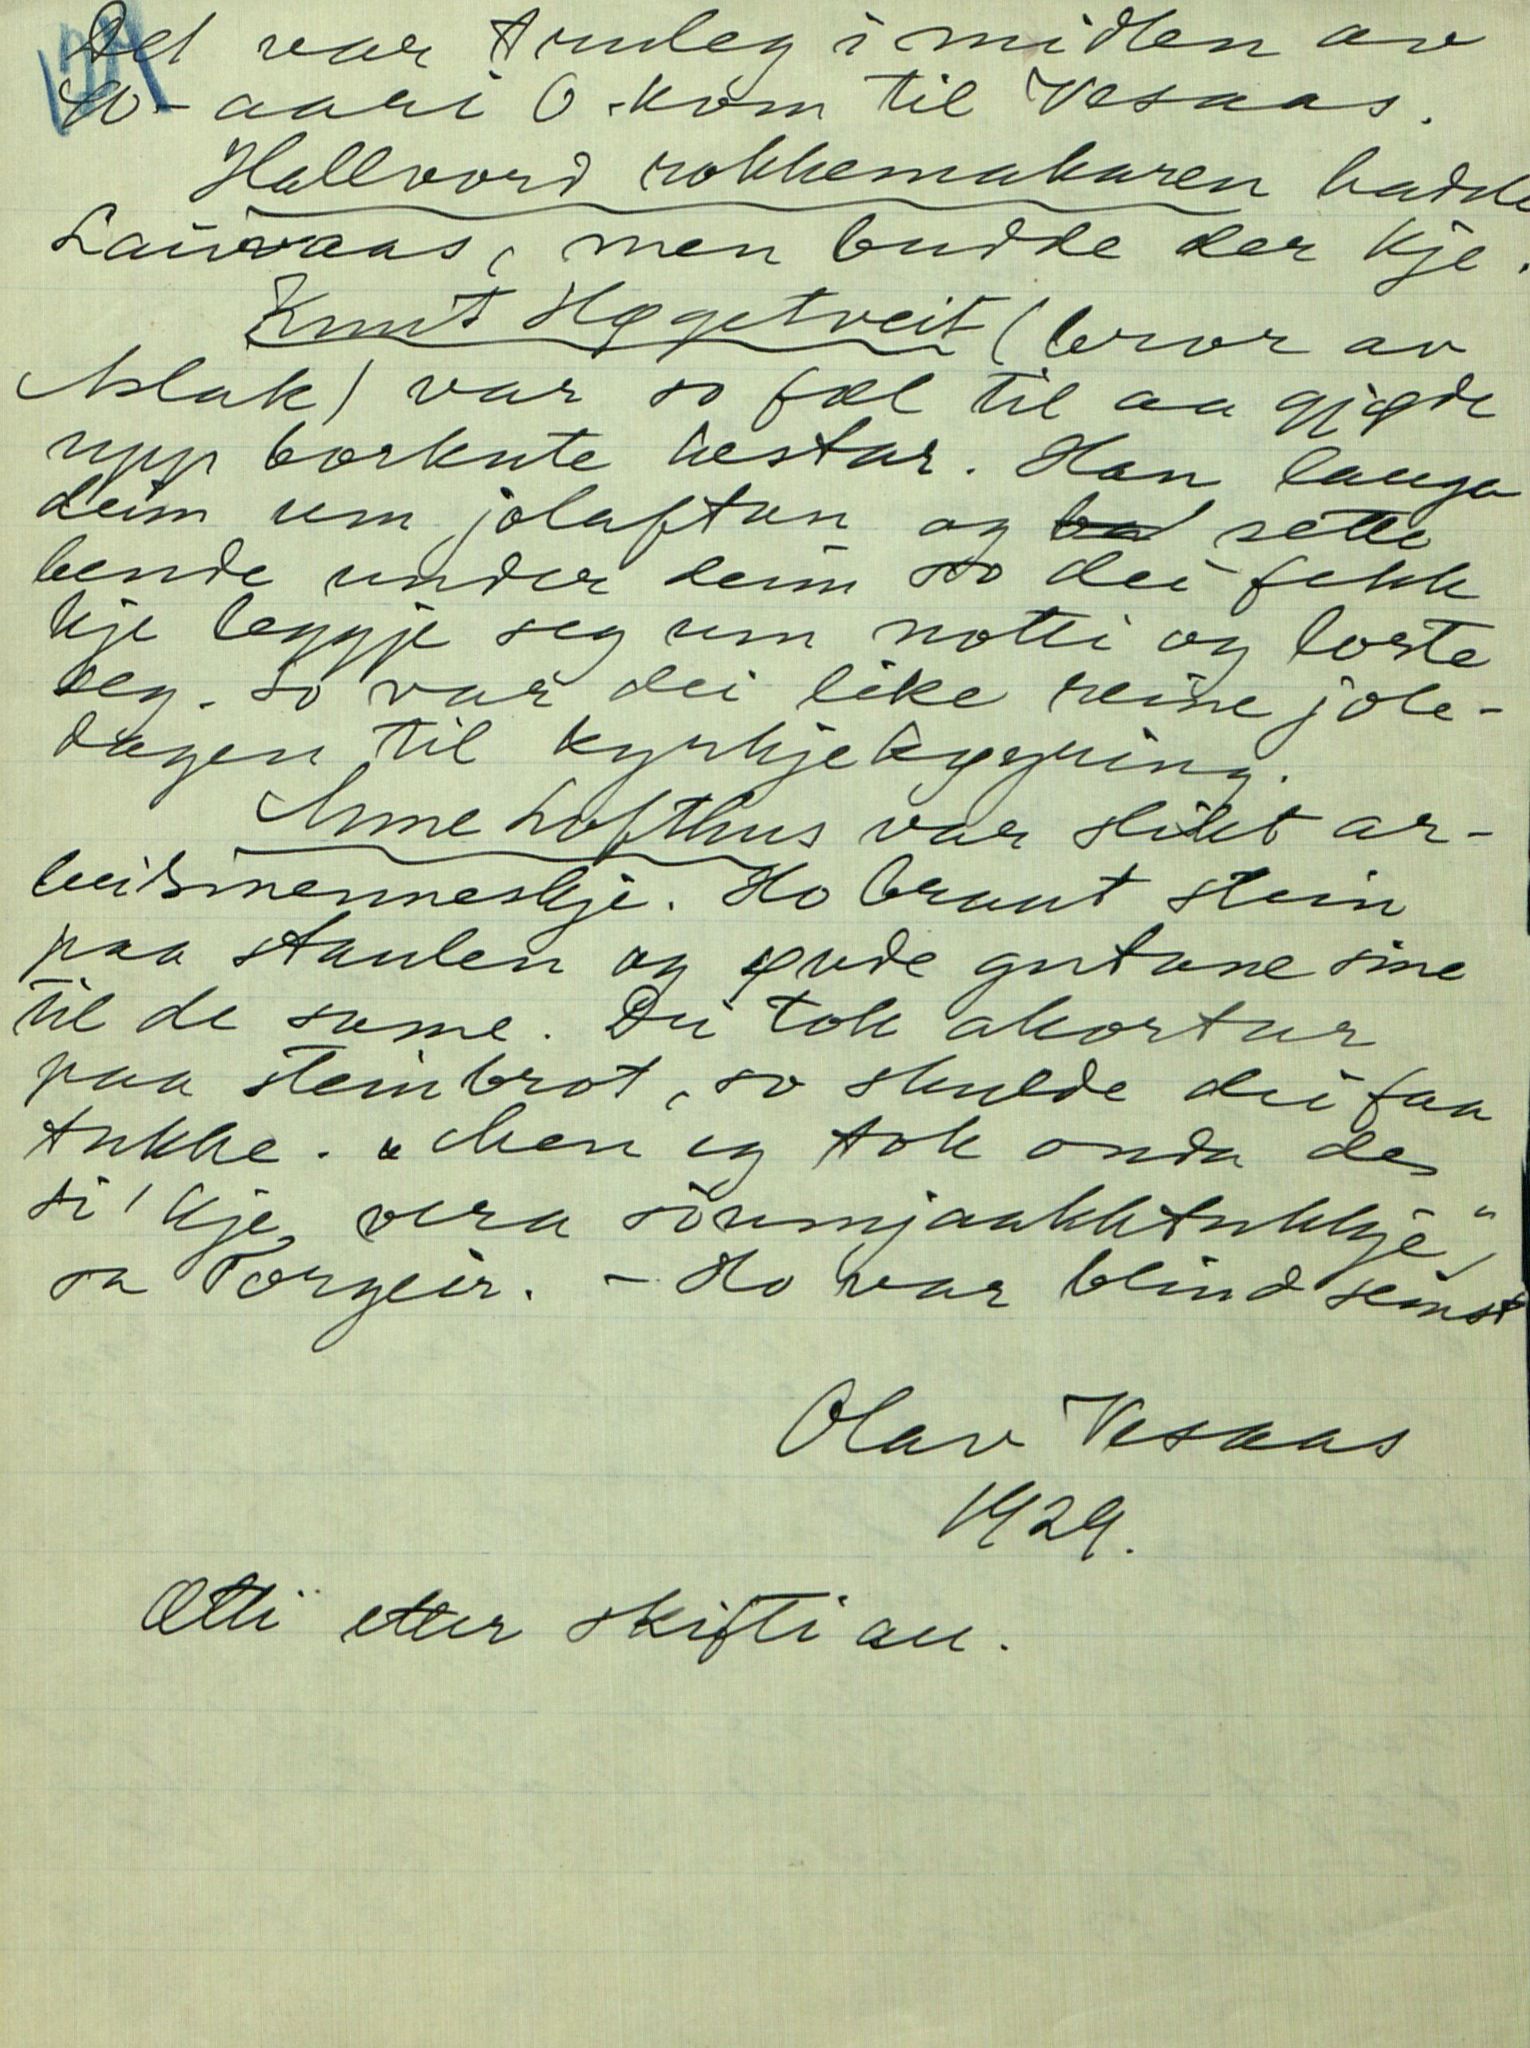 Det var truleg i midten av
40-aari O. kom til Vesaas.
Hallvord rokkemakaren hadde
Lauvaas, men budde der kje.
Knut Høgetveit (bror av
Aslak) var so fæl til aa gjøde
upp borkute hestar. Han lauga
deim um jolaftan og sette
bende under deim so dei fekk
kje leggje seg um notti og lorte
seg. So var dei like reine jole-
dagen til kyrkjekøyring.
Anne Lofthus var slikt ar-
beidsmenneskje. Ho braut stein
paa staulen og øvde gutane sine
til de same. Dei tok akortar
paa steinbrot, so skulde dei faa
tukke. "Men eg tok onda des
si' kje vera tukkje",
sa Torgeir. - Ho var blind seinst
Olav Vesaas
1929.
Ætti etter skifti au.